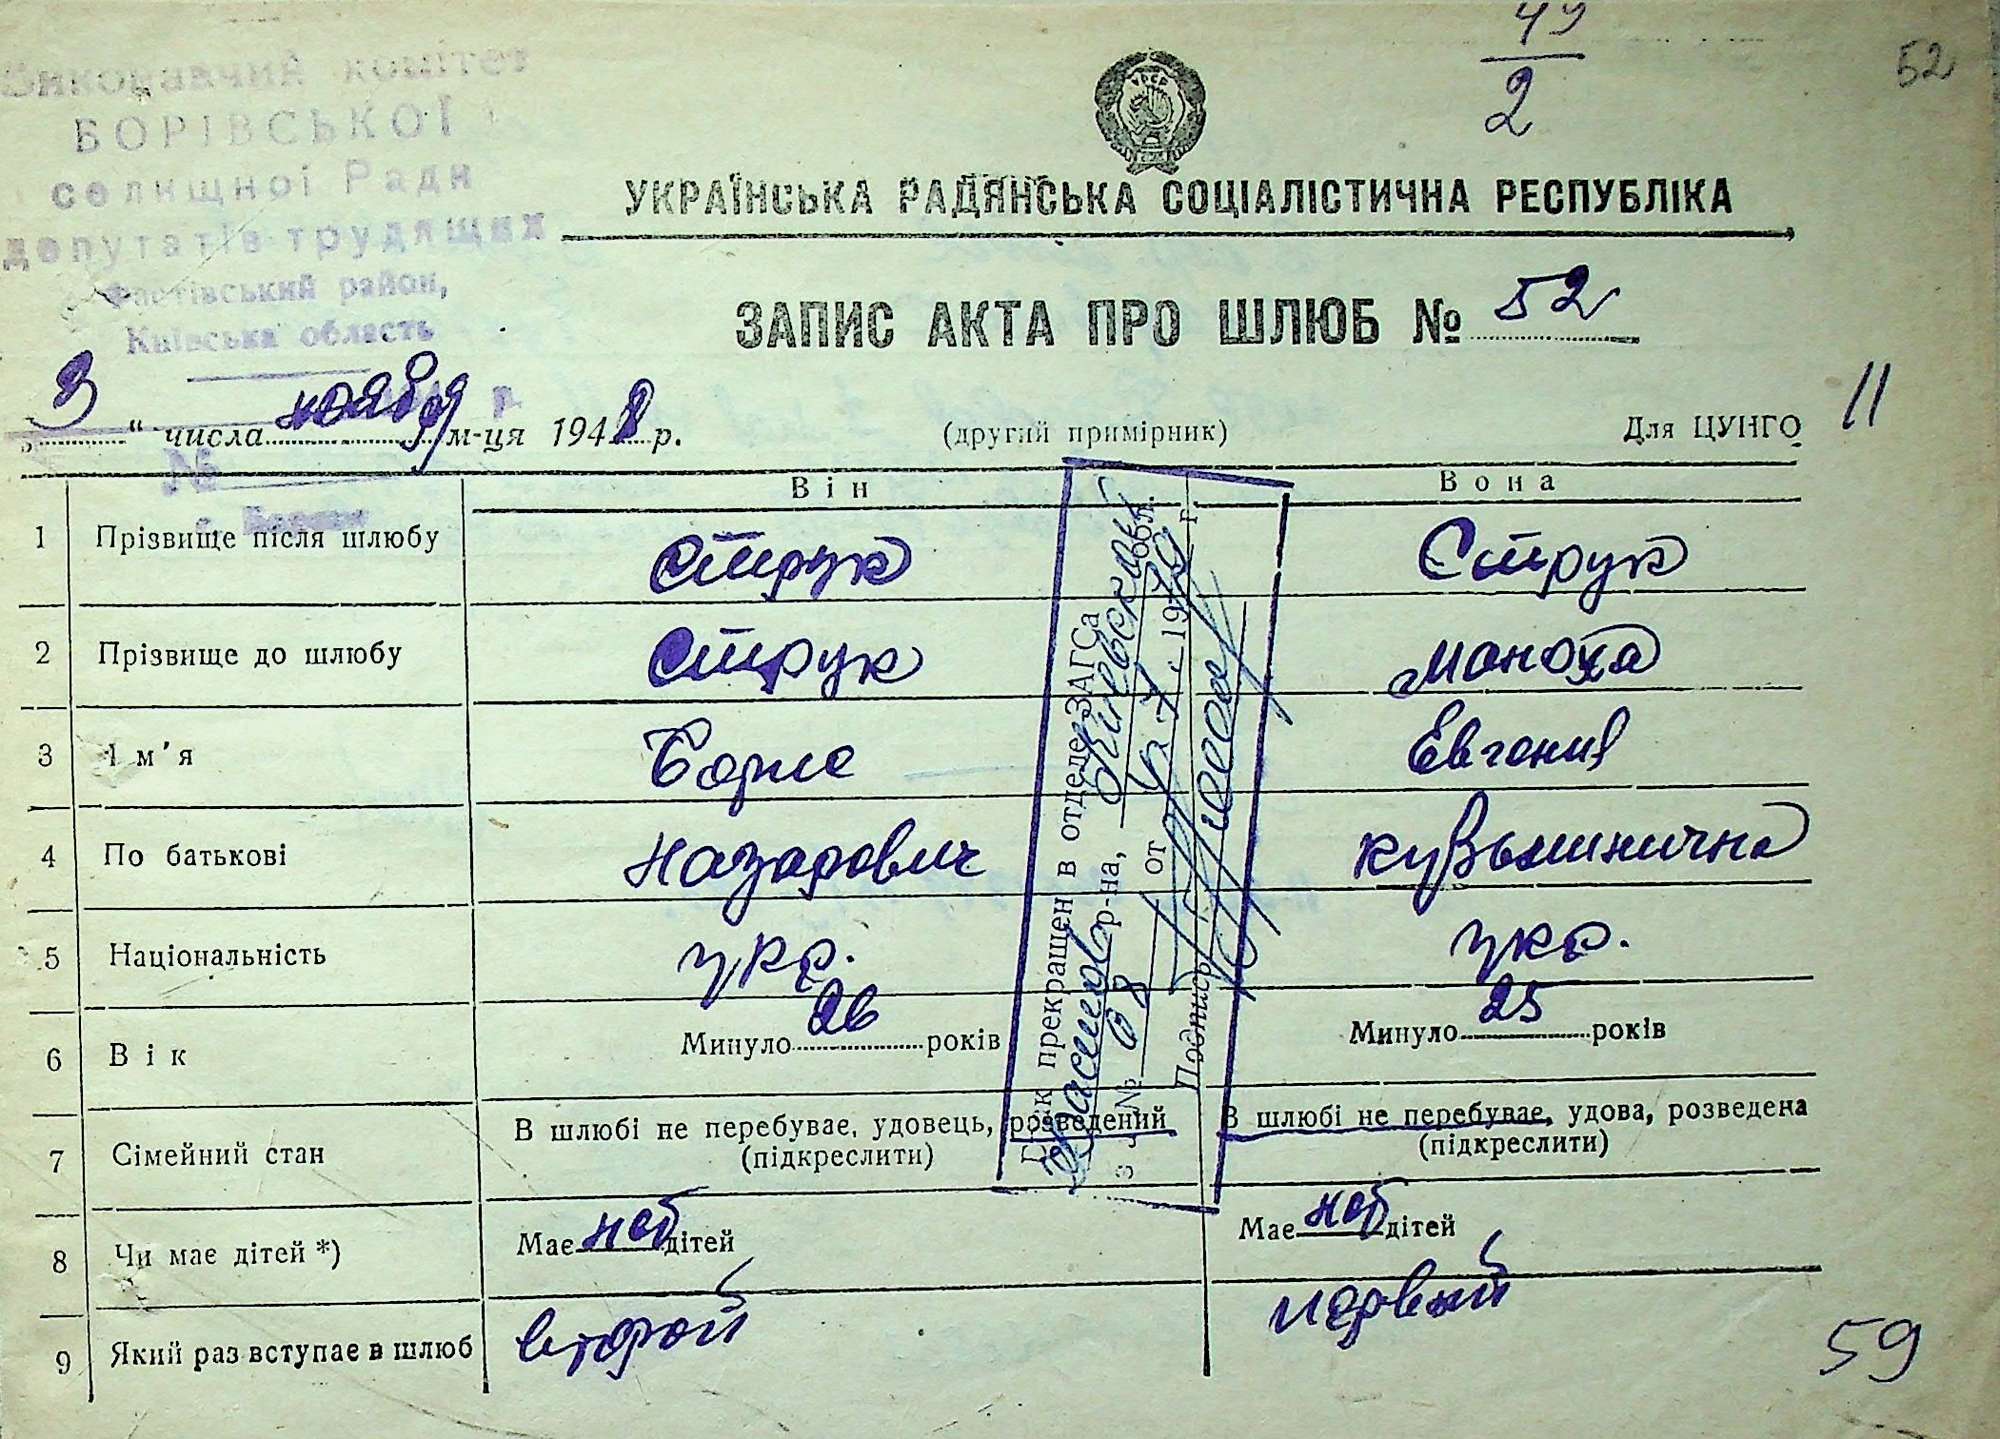 49
2
52
Виконавчий комітет
БОРІВСЬКОЇ
селищної Ради
депутатів трудящих
Фастівський район,
Київська область
УКРАЇНСЬКА РАДЯНСЬКА СОЦІАЛІСТИЧНА РЕСПУБЛІКА
ЗАПИС АКТА ПРО ШЛЮБ № 52
„3“ числа ноября м-ця 1948 р.
(другий примірник)
Для ЦУНГО
11
№
Він
Вона
1 Прізвище після шлюбу Струк Струк
2 Прізвище до шлюбу Струк Маноха
3 Ім'я Борис Евгения
4 По батькові Назарович Кузьминична
5 Національність укр. укр.
6 Вік Минуло 26 років Минуло 25 років
7 Сімейний стан В шлюбі не перебуває, удовець, розведений В шлюбі не перебуває, удова, розведена
(підкреслити) (підкреслити)
8 Чи має дітей *) Має нет дітей Має нет дітей
9 Який раз вступає в шлюб второй первый
59
прекращен в отделе ЗАГСа
р-на, Киевской обл.
№ 08 от 197 г.
Подпись